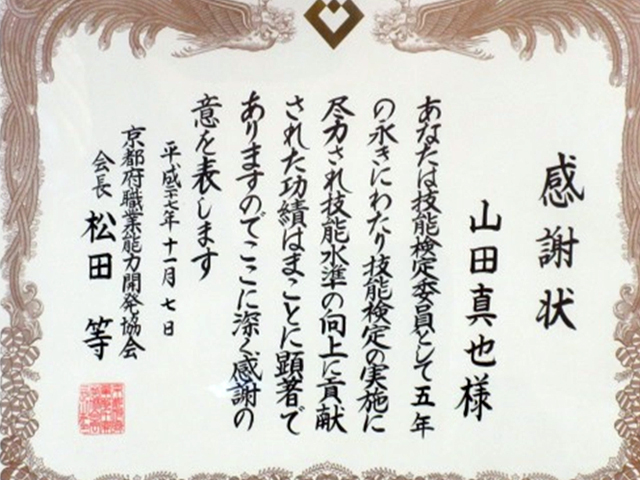 感謝状
山田真也様
あなたは技能検定委員として五年
の永きにわたり技能検定の実施に
尽力され技能水準の向上に貢献
された功績はまことに顕著で
ありますのでここに深く感謝の
意を表します
平成二十七年十一月七日
京都府職業能力開発協会
会長 松田 等